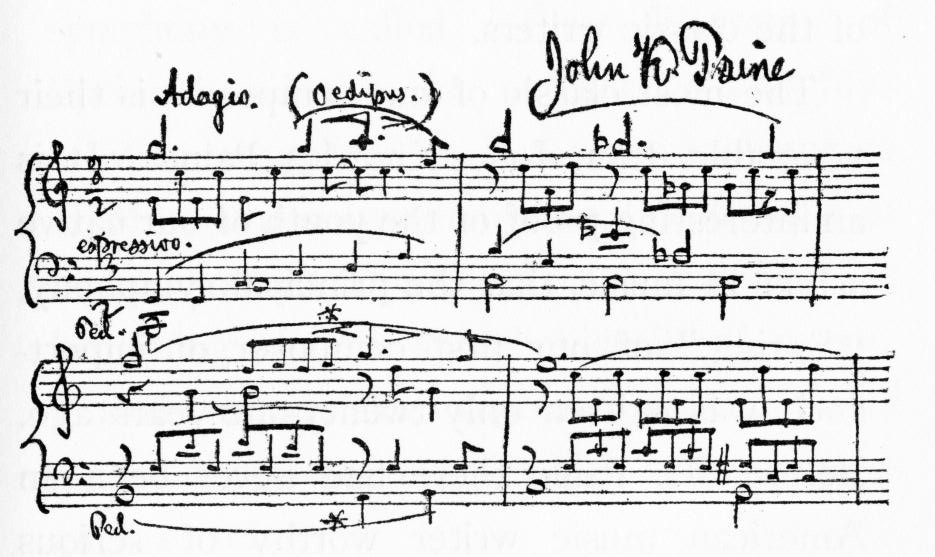 John K. Paine
Adagio. (Oedipus.)
3
2
espressivo.
3
2
Ped. *
Ped. *